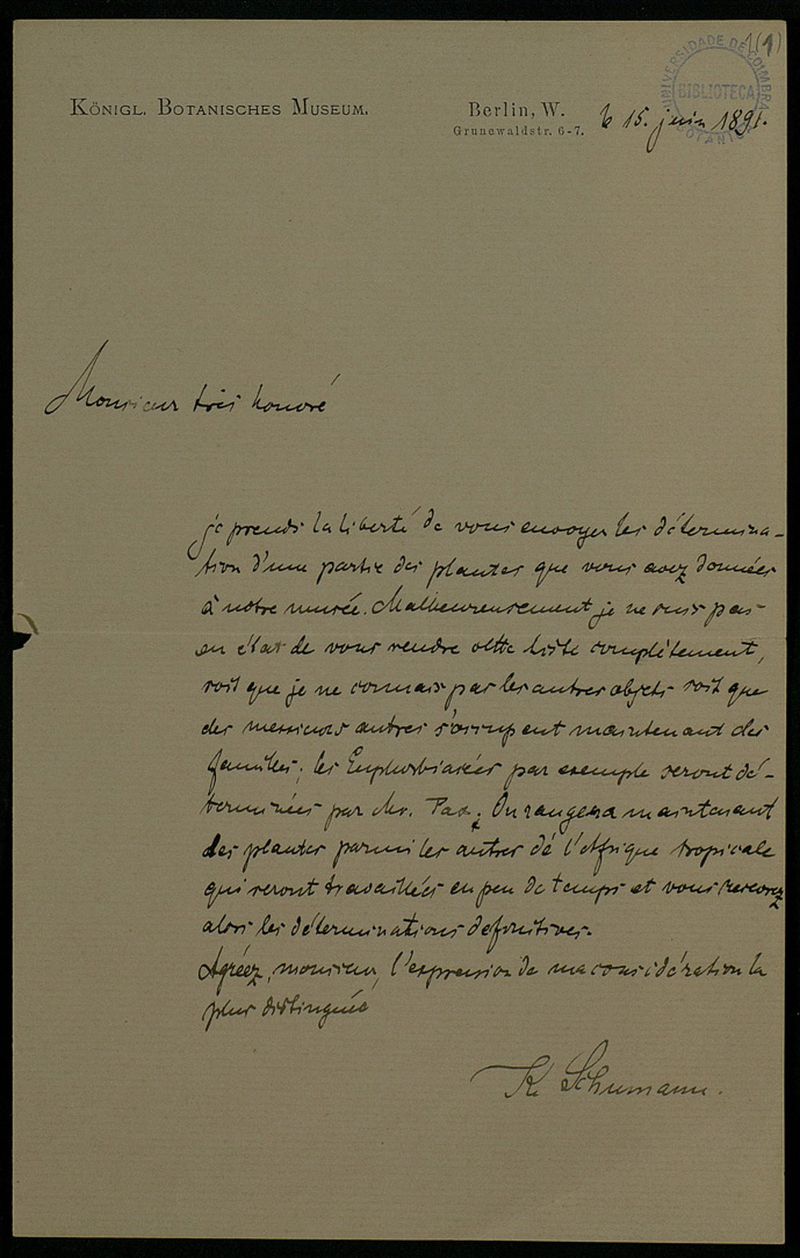 1(1)
UNIVERSIDADE DE COIMBRA
BIBLIOTECA
BOTANICA
KÖNIGL. BOTANISCHES MUSEUM.
Berlin, W.
Grunewaldstr. 6-7.
le 15. juin 1891.
Monsieur très honoré
je prends la liberté de vous envoyer les détermina-
tion d'une partie des plantes que vous avez données
à notre musée. Malheureusement je ne suis pas
en état de vous rendre cette liste complètement,
soit que je ne connais pas les autres objets soit que
des messieurs autres s'occupent maintenant des
familles; les Euphorbiacées par exemple seront dé-
terminées par Mr. Pax. On rangera maintenant
les plantes parmi les autres de l'Afrique tropicale
qui seront travaillées en peu de temps et vous recevrez
alors les déterminations definitives.
Agréez, monsieur, l'expression de ma considération la
plus distinguée
K. Schumann.